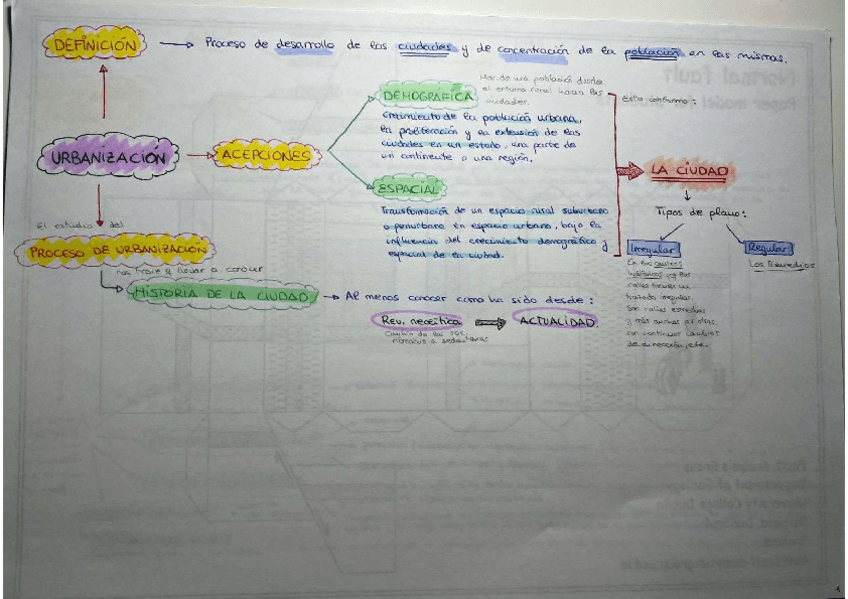 DEFINICIÓN → Proceso de desarrollo de las ciudades y de concentración de la población en las mismas.
URBANIZACIÓN
ACEPCIONES
DEMOGRÁFICA
Mar. de una población desde
el entorno rural hacia las
ciudades.
Crecimiento de la población urbana,
la proliferación y la extensión de las
ciudades en un estado, una parte de
un continente o una región.
ESPACIAL
Transformación de un espacio rural suburbano
o periurbano en espacio urbano, bajo la
influencia del crecimiento demográfico y
espacial de la ciudad.
Esto conforma:
LA CIUDAD
Tipos de plano:
Irregular
En los cascos
históricos, las
calles tienen un
trazado irregular.
Son calles estrechas
y más
con continuos cambios
de dirección, etc.
Regular
Los Remedios
El estudio del
PROCESO DE URBANIZACIÓN
nos lleva a conocer
HISTORIA DE LA CIUDAD → Al menos conocer como ha sido desde:
Rev. neolítica → ACTUALIDAD.
Cambio de las soc.
nómadas a sedentarias
Normal fault
Paper model
Fault Analysis Group
Department of Geology
University College Dublin
Ireland